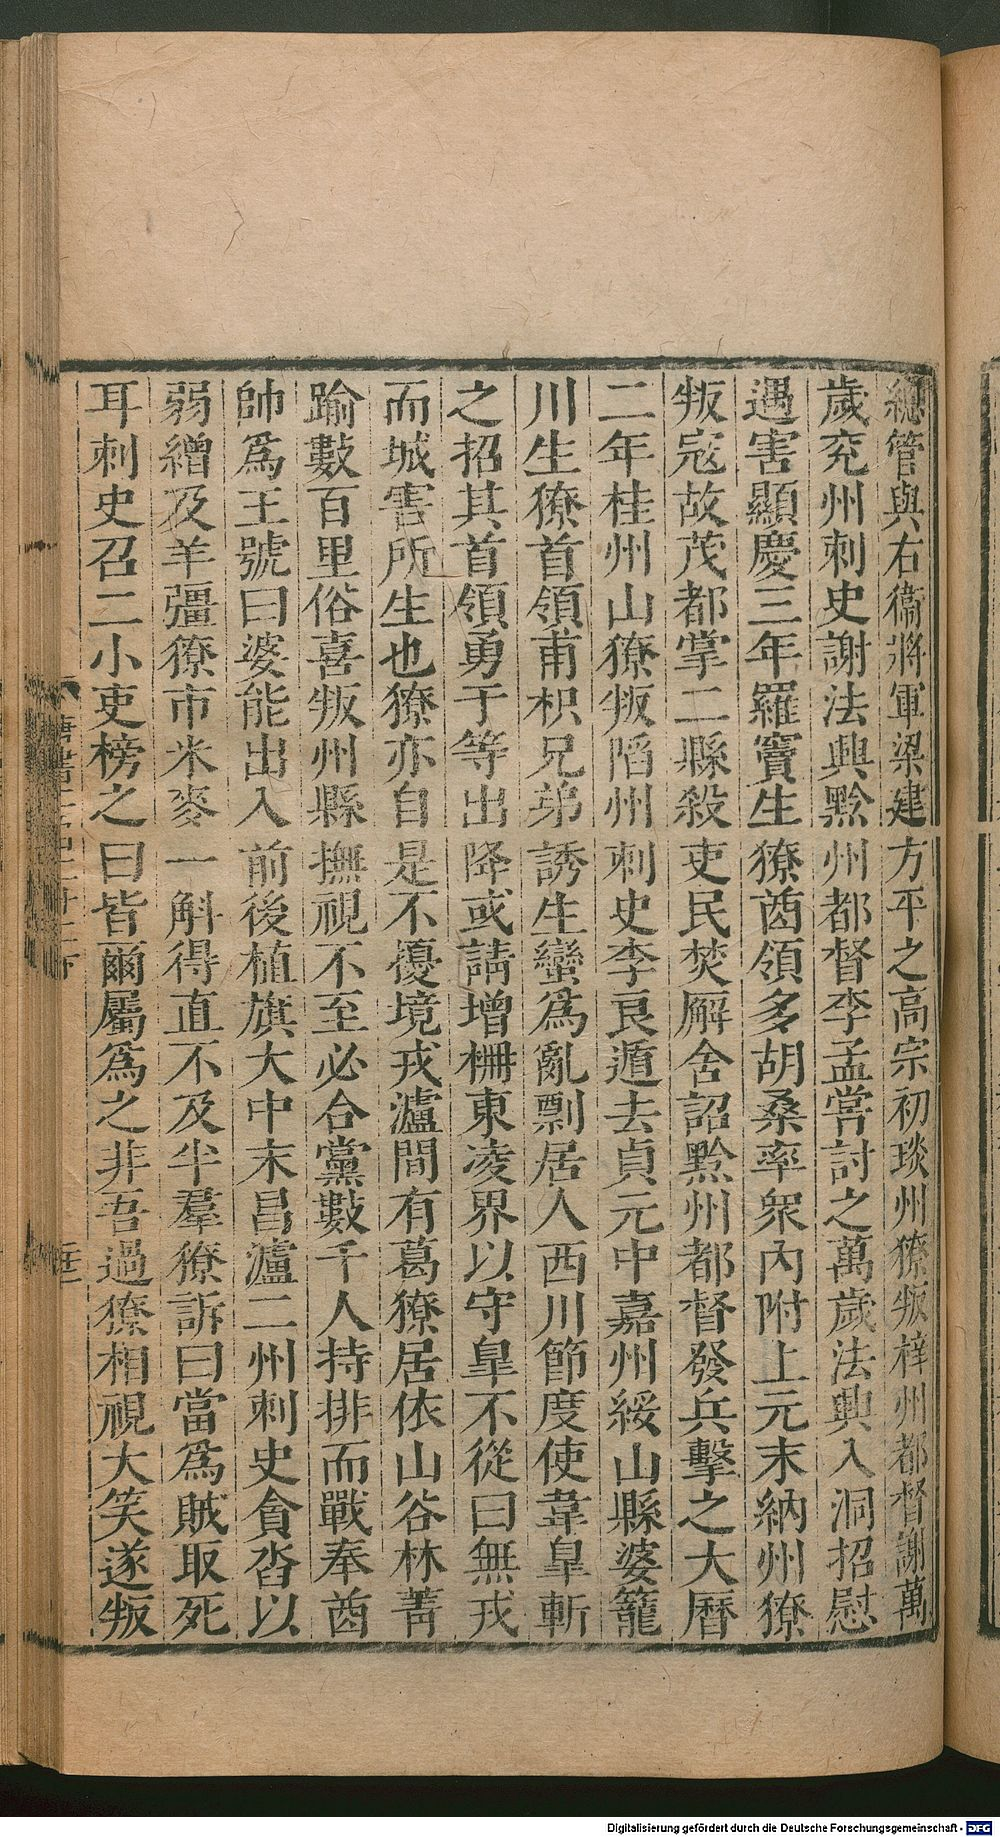 總管與右衞將軍梁建方平之高宗初琰州獠叛梓州都督謝萬
歲兖州刺史謝法興黔州都督李孟嘗討之萬歲法興入洞招慰
遇害顯慶三年羅竇生獠酋領多胡桑率衆內附上元末納州獠
叛寇故茂都掌二縣殺吏民焚廨舍詔黔州都督發兵擊之大曆
二年桂州山獠叛陷州刺史李良遁去貞元中嘉州綏山縣婆籠
川生獠首領甫枳兄弟誘生蠻爲亂剽居人西川節度使韋臯斬
之招其首領勇于等出降或請增柵東凌界以守臯不從曰無戎
而城害所生也獠亦自是不擾境戎瀘間有葛獠居依山谷林菁
踰數百里俗喜叛州縣撫視不至必合黨數千人持排而戰奉酋
帥爲王號曰婆能出入前後植旗大中末昌瀘二州刺史貪沓以
弱繒及羊彊獠市米麥一斛得直不及半羣獠訴曰當爲賊取死
耳刺史召二小吏榜之曰皆爾屬爲之非吾過獠相視大笑遂叛
Digitalisierung gefördert durch die Deutsche Forschungsgemeinschaft - DFG